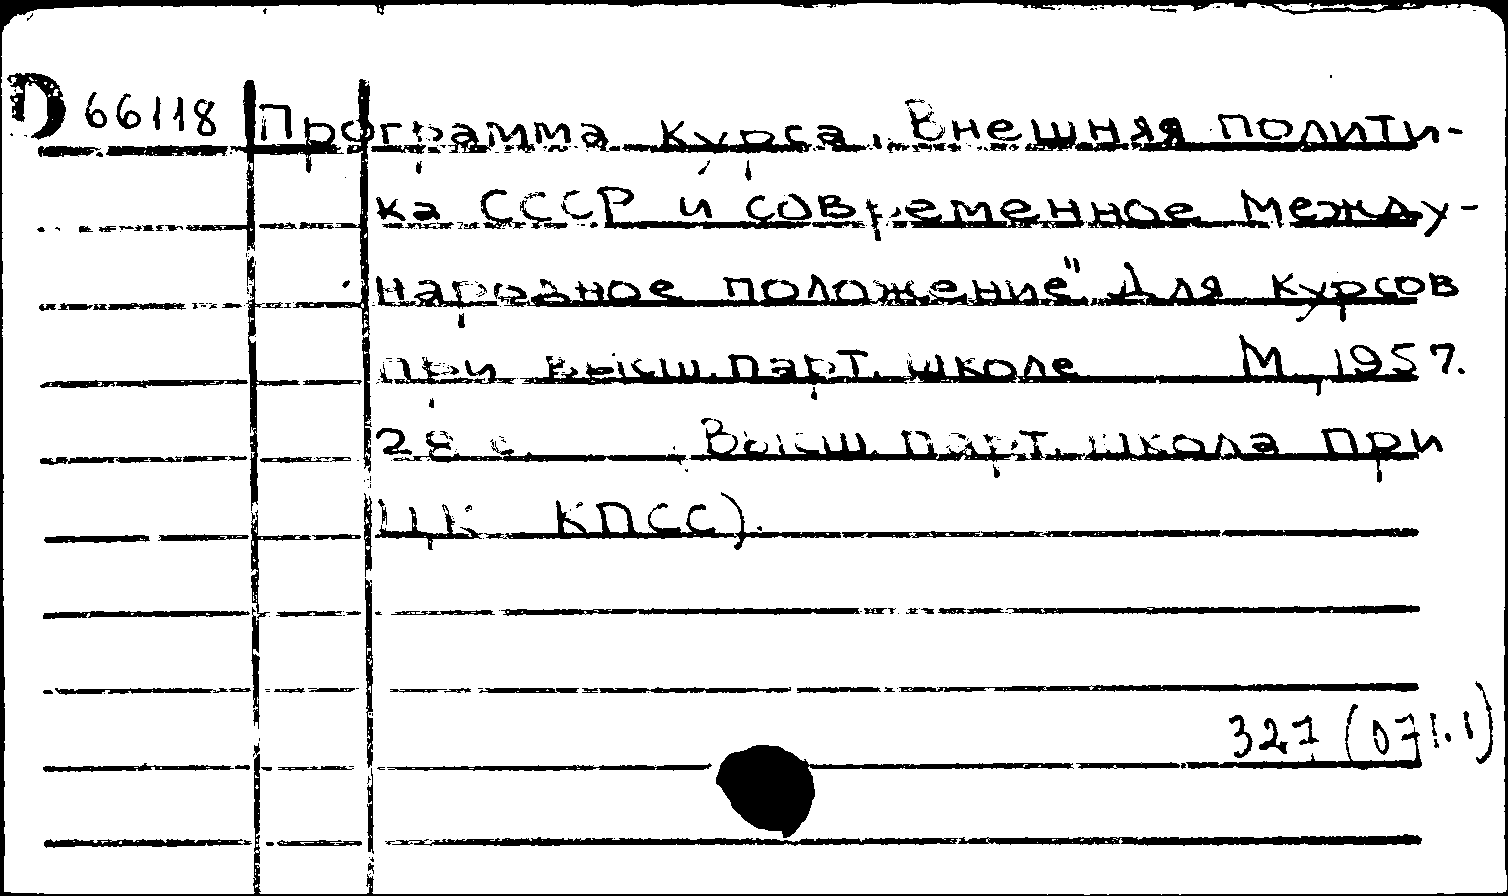 D 66118 Программа курса "Внешняя полити-
ка СССР и современное между-
народное положение". Для курсов
при высш. парт. школе М., 1957.
28 с. (Высш. парт. школа при
ЦК КПСС).
327 (071.1)